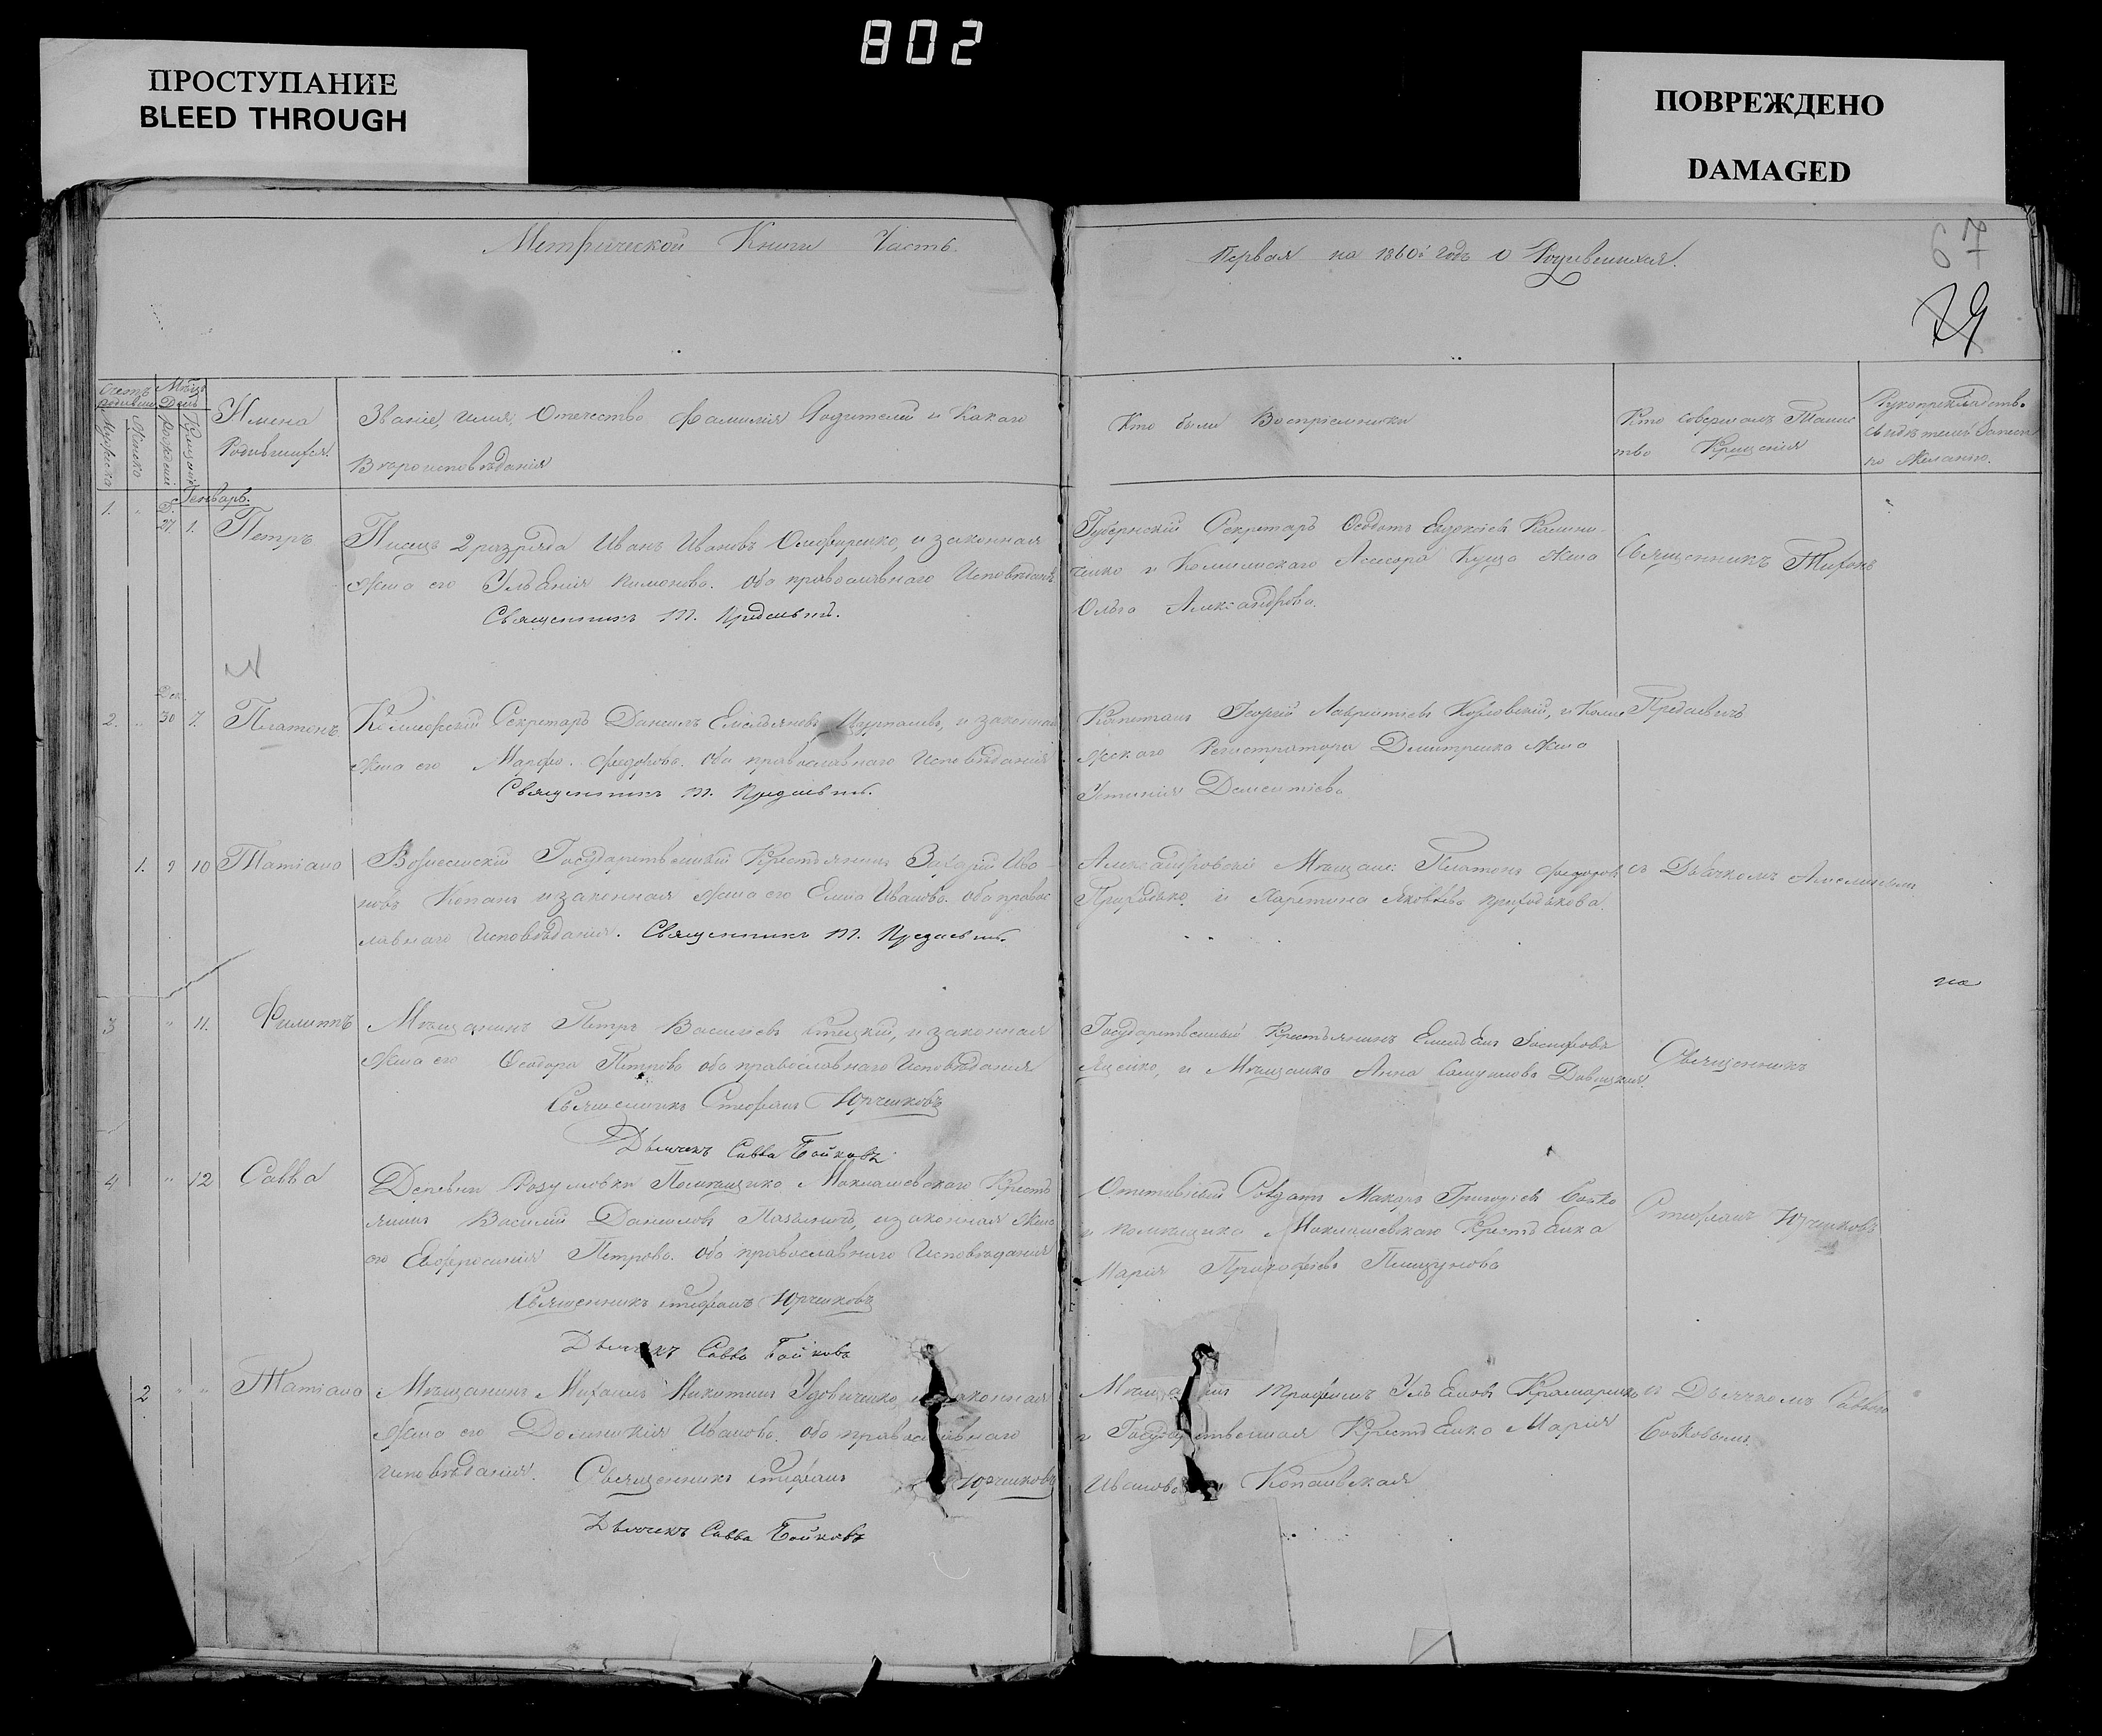 802
ПРОСТУПАНИЕ
BLEED THROUGH
ПОВРЕЖДЕНО
DAMAGED
Метрической Книги Часть
Первая на 1860й годъ о Родившихся.
67
Счетъ родивших
Мужеска
Женска
Мѣсяцъ День
Рожденія
Крещенія
Имена
Родившихся.
Званіе, имя, Отечество фамилія Родителей и Какого
Вѣроисповѣданія
Кто были Воспріемники
Кто совершалъ Таинс
тво Крещенія
Рукоприкладство
свидѣтелей записи
по желанію.
Генварь.
1. " Д. 27. 1. Петръ
Писецъ 2 разряда Иванъ Ивановъ Олифиренко, и законная
жена его Ульянія Пимонова. оба православнаго Исповѣданія
Священникъ Т. Предаевичъ.
Губернскій Секретарь Ѳеодотъ Евдокіевъ Калини-
ченко и Колежскаго Асесора Куща жена
Ольга Александрова.
Священникъ Тихонъ
2. " Дек. 30 7. Платонъ
Колежскій Секретарь Даніилъ Емельяновъ и законная
жена его Марфа Федорова. оба православнаго Исповѣданія
Священникъ Т. Предаевичъ.
Капитанъ Георгій Лаврентіевъ Козловскій, и Колле
жскаго Регистратора Дмитренка жена
Устинія Дементіева
Предаевичъ
1. 9 10 Татіана
Вознесенскій Государственный Крестьянинъ Захарій Ива
новъ Копанъ и законная жена его Елена Иванова. оба правос
лавнаго Исповѣданія. Священникъ Т. Предаевичъ.
Александровскій Мѣщан: Платонъ Федоровъ
Приходько. и Харитина Яковлева Приходькова.
съ Дьячкомъ
на
3 " 11. Филиппъ
Мѣщанинъ Петръ Василіевъ и законная
жена его Ѳеодора Петрова оба православнаго Исповѣданія
Священникъ Стефанъ Юрченковъ
Дьячекъ Савва Бойковъ
Государственный Крестьянинъ Емельянъ Іосифовъ
Яценко, и Мѣщанка Анна Самуилова
Священникъ
4 " 12 Савва
Деревни Розумовки Помѣщика Миклашевскаго Кресть
янинъ Василій Даниловъ и законная жена
его Евфросинія Петрова. оба православнаго Исповѣданія
Священникъ Стефанъ Юрченковъ
Дьячекъ Савва Бойковъ
Отставный Солдатъ Макаръ Григоріевъ Бойко
и помѣщика Миклашевскаго Крестьянка
Марія Прикофіева
Стефанъ Юрченковъ
2 " " Татіана
Мѣщанинъ Михаилъ Никитинъ Удовиченко, и законная
жена его Домникія Иванова. оба православнаго
исповѣданія. Священникъ Стефанъ Юрченковъ
Дьячекъ Савва Бойковъ
Мѣщанинъ Трофимъ Ульяновъ Крамаренко
и Государственная Крестьянка Марія
Иванова Копаевская
съ Дьячкомъ Саввою
Бойковымъ.